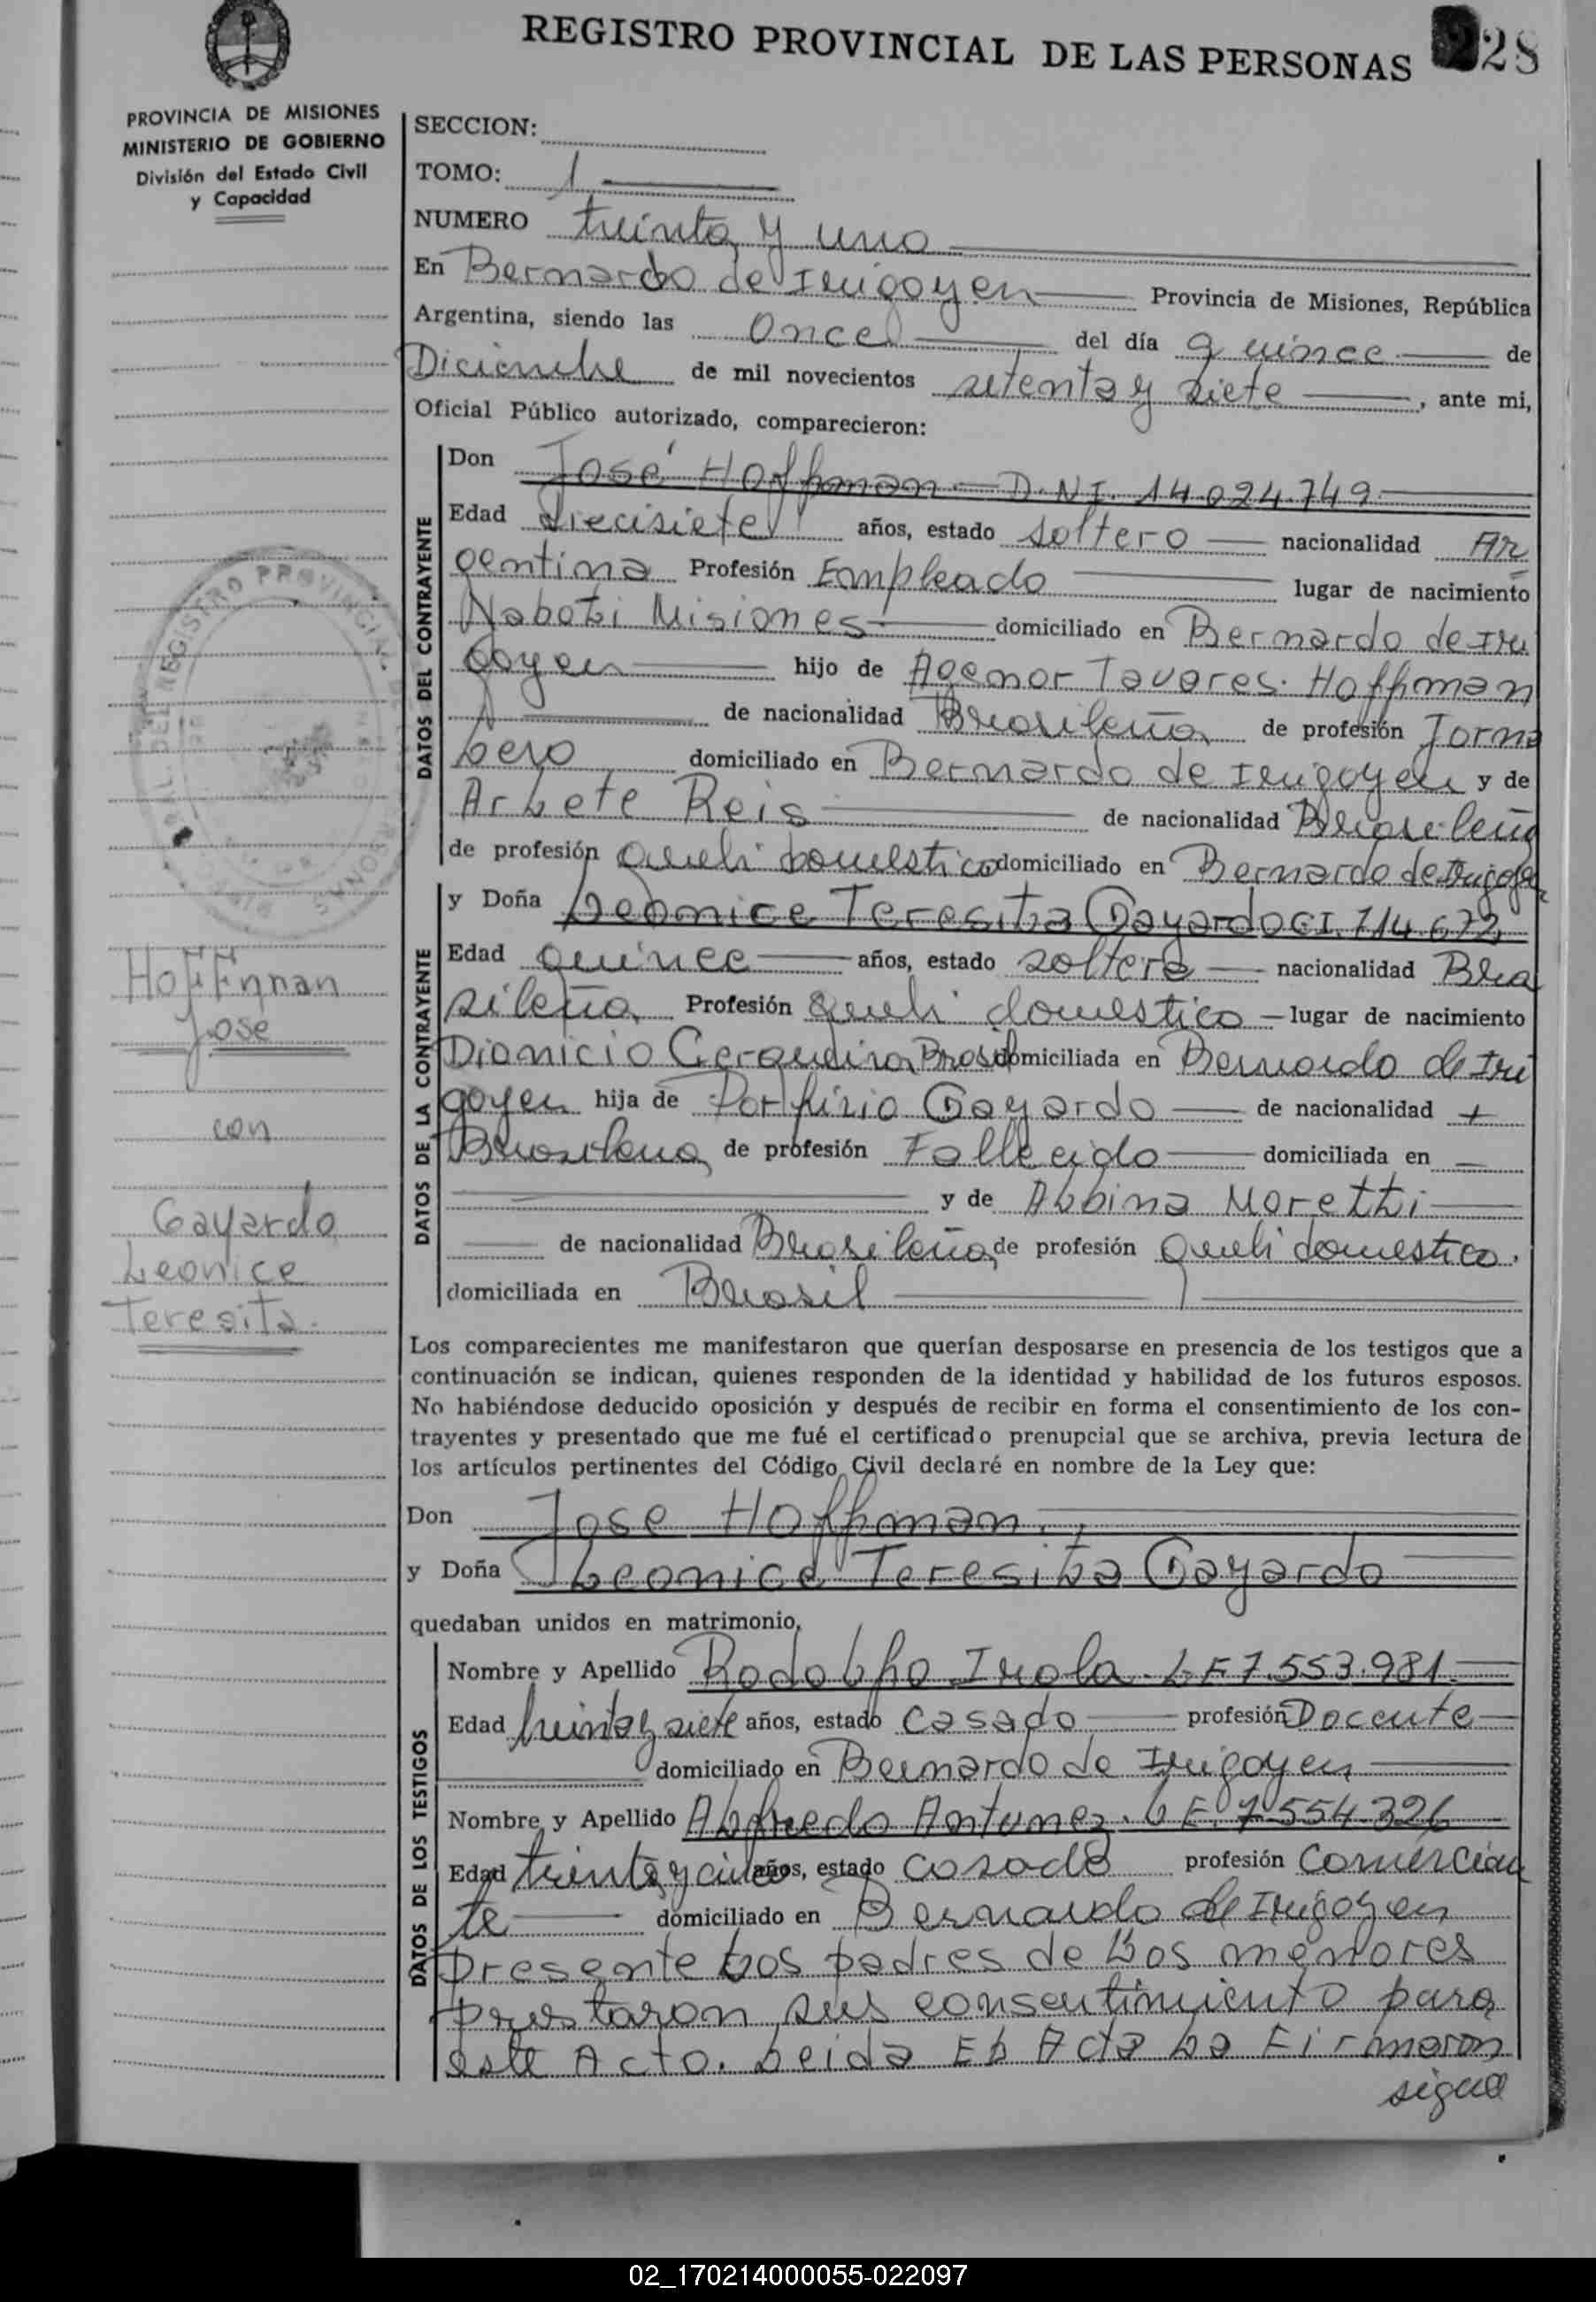 REGISTRO PROVINCIAL DE LAS PERSONAS 228
PROVINCIA DE MISIONES
MINISTERIO DE GOBIERNO
División del Estado Civil
y Capacidad
SECCION:
TOMO: 1
NUMERO treinta y uno
En Bernardo de Irigoyen Provincia de Misiones, República
Argentina, siendo las Once del día quince de
Diciembre de mil novecientos setenta y siete, ante mi,
Oficial Público autorizado, comparecieron:
DATOS DEL CONTRAYENTE
Don José Hoffman - D.N.I. 14.024.749
Edad diecisiete años, estado soltero nacionalidad Ar
gentina Profesión Empleado lugar de nacimiento
Misiones domiciliado en Bernardo de Iri
goyen hijo de Agenor Tavares Hoffman
de nacionalidad Brasileña de profesión Jorna
lero domiciliado en Bernardo de Irigoyen y de
Arlete Reis de nacionalidad Brasileña
de profesión Queh domestico domiciliado en Bernardo de Irigoyen
DATOS DE LA CONTRAYENTE
y Doña Leonice Teresita Gayardo CI. 714.672
Edad quince años, estado soltera nacionalidad Bra
sileña Profesión Queh domestico lugar de nacimiento
Dionicio Cerqueira Brasil domiciliada en Bernardo de Iri
goyen hija de Porfirio Gayardo de nacionalidad +
Brasileña de profesión Fallecido domiciliada en
y de Albina Moretti
de nacionalidad Brasileña de profesión Queh domestico.
domiciliada en Brasil
Hoffman
Jose
con
Gayardo
Leonice
Teresita.
Los comparecientes me manifestaron que querían desposarse en presencia de los testigos que a
continuación se indican, quienes responden de la identidad y habilidad de los futuros esposos.
No habiéndose deducido oposición y después de recibir en forma el consentimiento de los con-
trayentes y presentado que me fué el certificado prenupcial que se archiva, previa lectura de
los artículos pertinentes del Código Civil declaré en nombre de la Ley que:
Don Jose Hoffman
y Doña Leonice Teresita Gayardo
quedaban unidos en matrimonio.
DATOS DE LOS TESTIGOS
Nombre y Apellido Rodolfo Irala. L E 7.553.981.
Edad treinta y siete años, estado casado profesión Docente
domiciliado en Bernardo de Irigoyen
Nombre y Apellido Alfredo Antunez. L E. 7.554.326
Edad treinta y cinco años, estado casado profesión Comercian
te domiciliado en Bernardo de Irigoyen
Presente los padres de los menores
prestaron sus consentimiento para
este Acto. Leida El Acta La Firmaron
sigue
02_170214000055-022097